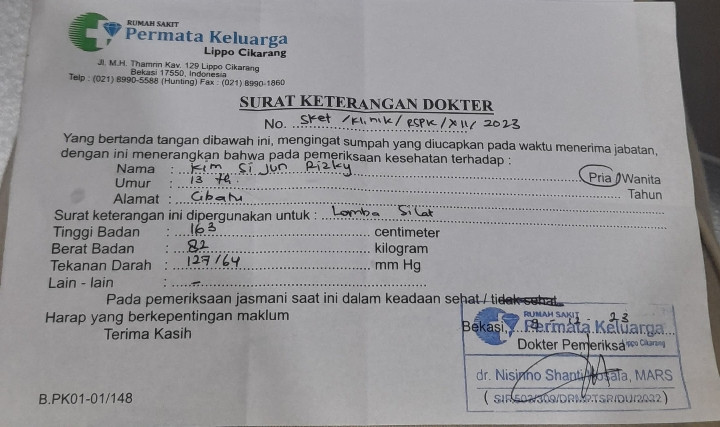 RUMAH SAKIT
Permata Keluarga
Lippo Cikarang
Jl. M.H. Thamrin Kav. 129 Lippo Cikarang
Bekasi 17550, Indonesia
Telp : (021) 8990-5588 (Hunting) Fax : (021) 8990-1860
SURAT KETERANGAN DOKTER
No. Sket /Klinik/ RSPK/XII/ 2023
Yang bertanda tangan dibawah ini, mengingat sumpah yang diucapkan pada waktu menerima jabatan,
dengan ini menerangkan bahwa pada pemeriksaan kesehatan terhadap :
Nama : Kim Si Jun Rizky Pria / Wanita
Umur : 13 th Tahun
Alamat : Cibatu
Surat keterangan ini dipergunakan untuk : Lomba Silat
Tinggi Badan : 163 centimeter
Berat Badan : 82 kilogram
Tekanan Darah : 127/64 mm Hg
Lain - lain : -
Pada pemeriksaan jasmani saat ini dalam keadaan sehat / tidak sehat
Harap yang berkepentingan maklum
Terima Kasih
RUMAH SAKIT
Permata Keluarga
Lippo Cikarang
Bekasi, 9 - 12 - 23
Dokter Pemeriksa
dr. Nisinho Shanti, MARS
B.PK01-01/148